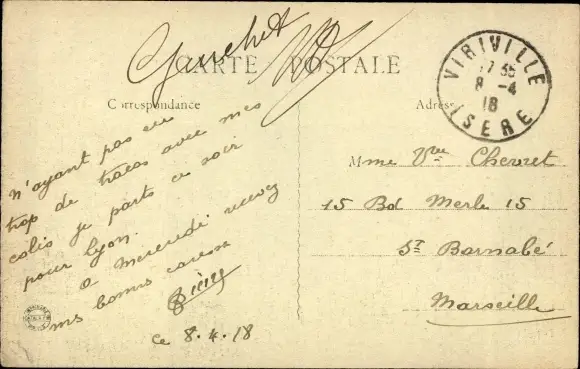 CARTE POSTALE
Correspondance
Adresse
VIRIVILLE
17 35
8 -4
18
ISERE
n'ayant pas eu
trop de tracas avec mes
colis je parts ce soir
pour Lyon.
a Mercredi recevez
mes bonnes caresses
ce 8.4.18
Mme Vve Chevret
15 Bd Merle 15
St Barnabé
Marseille